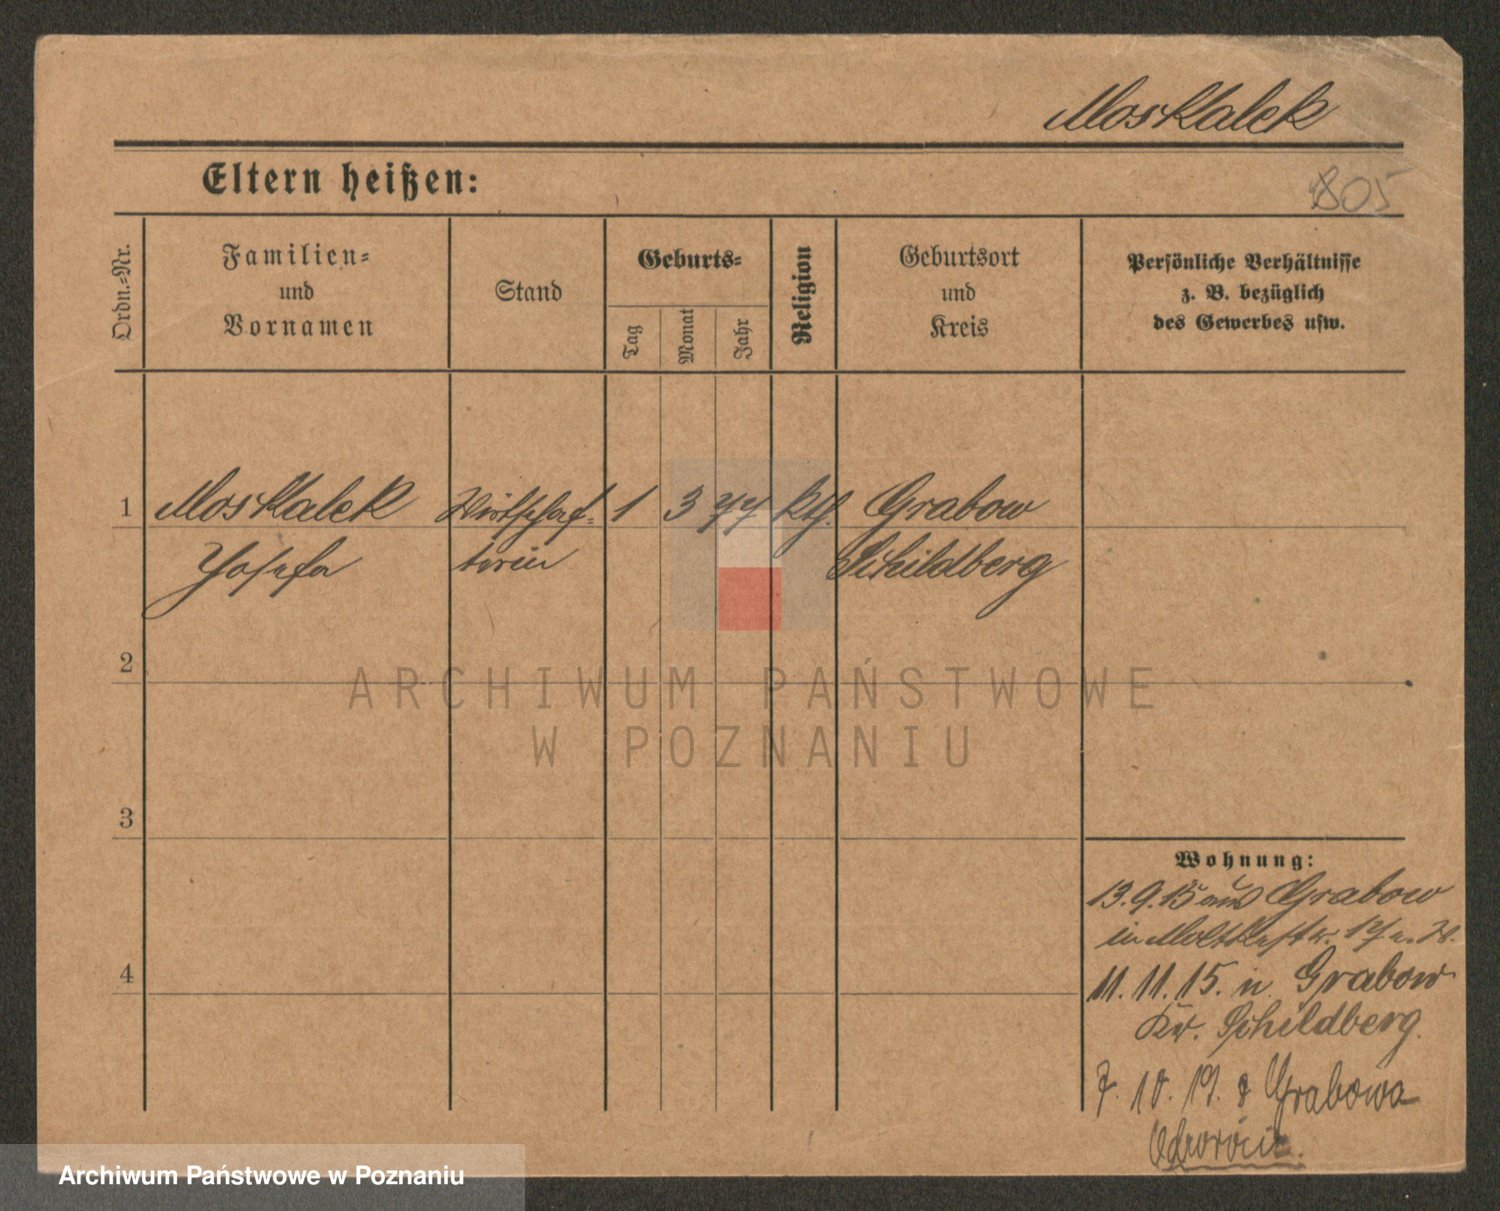 Moskalek
Eltern heißen:
805
Ordn.-Nr.
Familien-
und
Vornamen
Stand
Geburts-
Tag
Monat
Jahr
Religion
Geburtsort
und
Kreis
Persönliche Verhältnisse
z. B. bezüglich
des Gewerbes usw.
1 Moskalek Wirtschaf- 1 3 77 kth. Grabow
Josefa terin Schildberg
2
ARCHIWUM PAŃSTWOWE
W POZNANIU
3
Wohnung:
13.9.15 aus Grabow
in Moltkestr. 17
4
11.11.15. n. Grabow
Kr. Schildberg.
7. 10. 19. z Grabowa
Archiwum Państwowe w Poznaniu